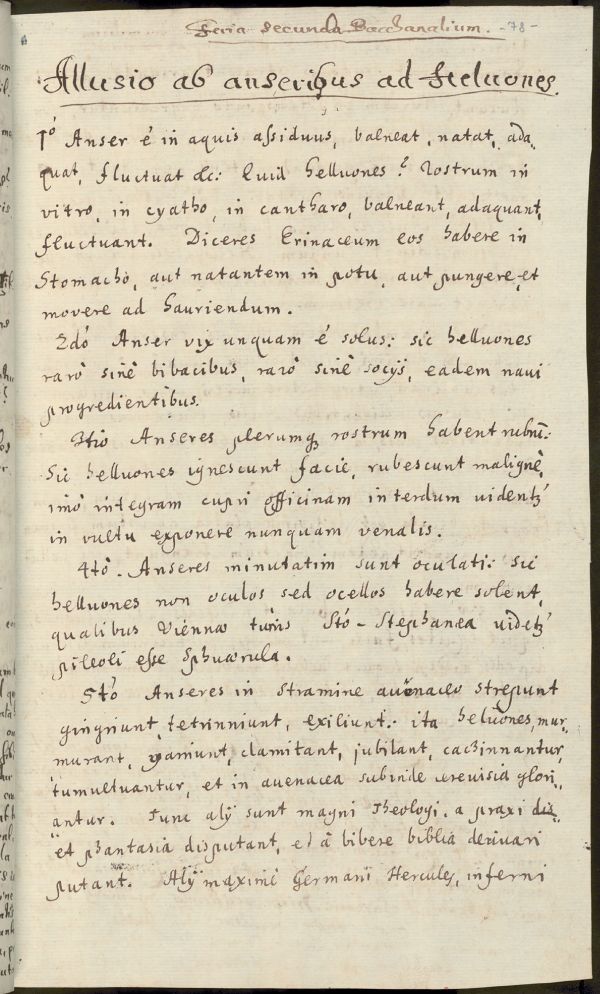 Feria secunda Bacchanalium. -78-
Allusio ab anseribus ad Helluones.
1º Anser é in aquis assiduus, balneat, natat, ada-
quat, fluctuat &c: Quid helluones? Rostrum in
vitro, in cyatho, in cantharo, balneant, adaquant,
fluctuant. Diceres Erinaceum eos habere in
Stomacho, aut natantem in potu, aut pungere, et
movere ad hauriendum.
2dó Anser vix unquam é solus: sic helluones
raro sinè bibacibus, rarò sinè socijs, eadem navi
progredientibus.
3tió Anseres plerumq rostrum habent rubrū:
Sic helluones ignescunt facie, rubescunt malignè,
imò integram cupri officinam interdum uidentʒ
in vultu exponere nunquam venalis.
4tò. Anseres minutatim sunt oculati: sic
helluones non oculos sed ocellos habere solent,
qualibus Viennæ turris Stó-Stephanæa uidetʒ
pileoli esse Sphærula.
5tò Anseres in stramine auenaceo strepunt
gingriunt, tetrinniunt, exiliunt: ita heluones, mur-
murant, ganiunt, clamitant, jubilant, cachinnantur,
tumultuantur, et in auenacea subinde cereuisia glori-
antur. Tunc alij sunt magni Theologi, a praxi
et phantasia disputant, et à bibere biblia deriuari
putant. Alij maximè Germani Hercules, inferni